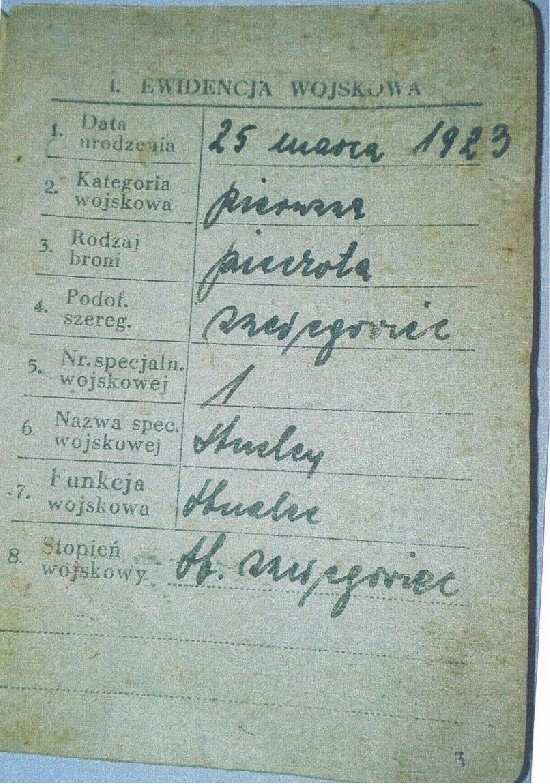 I. EWIDENCJA WOJSKOWA
1. Data urodzenia 25 marca 1923
2. Kategoria wojskowa pierwsza
3. Rodzaj broni piechota
4. Podof. szereg. szeregowiec
5. Nr. specjaln. wojskowej 1
6 Nazwa spec. wojskowej
7. Funkcja wojskowa strzelec
8. Stopień wojskowy szeregowiec
3